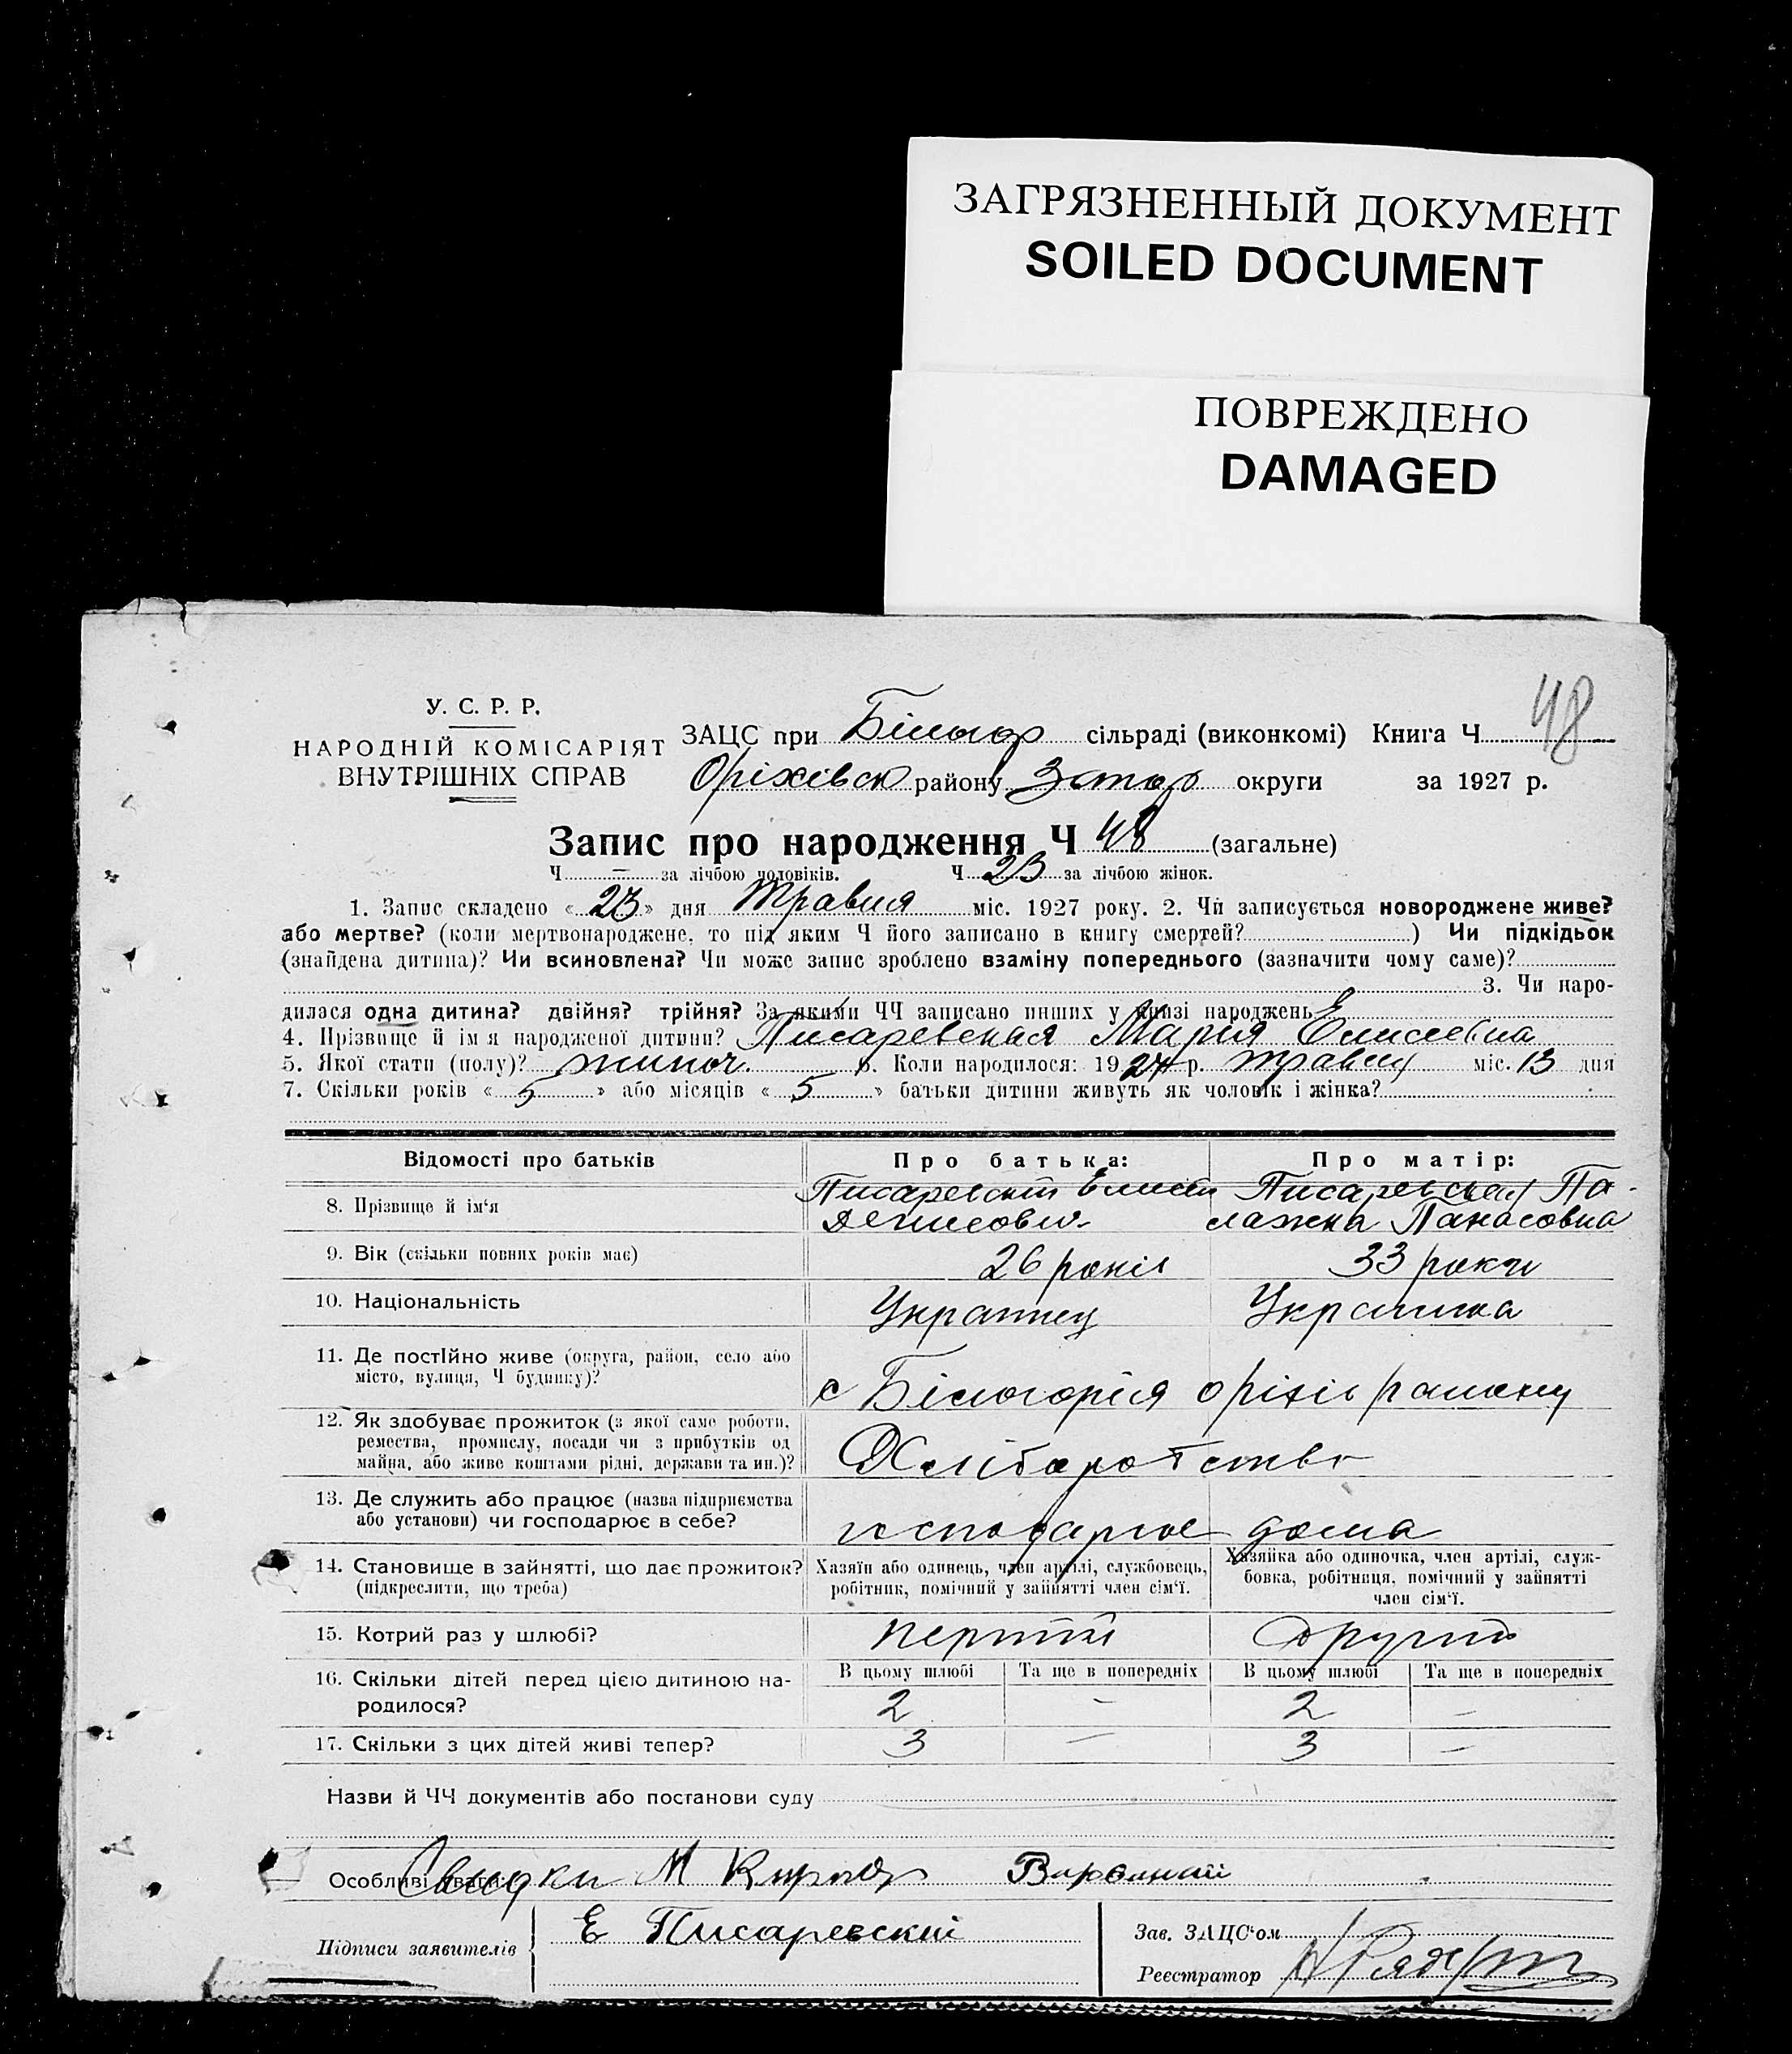 ЗАГРЯЗНЕННЫЙ ДОКУМЕНТ
SOILED DOCUMENT
ПОВРЕЖДЕНО
DAMAGED
48
У. С. Р. Р.
НАРОДНІЙ КОМІСАРІЯТ
ВНУТРІШНІХ СПРАВ
ЗАЦС при Білогор сільраді (виконкомі) Книга Ч
Оріхівск району Запор округи за 1927 р.
Запис про народження Ч 48 (загальне)
Ч — за лічбою чоловіків. Ч 23 за лічбою жінок.
1. Запис складено « 23 » дня Травня міс. 1927 року. 2. Чи записується новороджене живе?
або мертве? (коли мертвонароджене, то під яким Ч його записано в книгу смертей? ) Чи підкідьок
(знайдена дитина)? Чи всиновлена? Чи може запис зроблено взаміну попереднього (зазначити чому саме)?
3. Чи наро-
дилася одна дитина? двійня? трійня? За якими ЧЧ записано инших у книзі народжень
4. Прізвище й ім'я народженої дитини? Писаревская Мария Елисеевна
5. Якої стати (полу)? жиноч. 6. Коли народилося: 1927 р. травня міс. 13 дня
7. Скільки років « 5 » або місяців « 5 » батьки дитини живуть як чоловік і жінка?
Відомості про батьків Про батька: Про матір:
8. Прізвище й ім'я Писаревский Елисей Писаревская Па-
Денисович лажка Панасовна
9. Вік (скільки повних років має) 26 років 33 роки
10. Національність Украинец Украинка
11. Де постійно живе (округа, район, село або
місто, вулиця, Ч будинку)?
с Білогорія оріхів района
12. Як здобуває прожиток (з якої саме роботи,
ремества, промислу, посади чи з прибутків од
майна, або живе коштами рідні, держави та ин.)?
Хліборобство
13. Де служить або працює (назва підприємства
або установи) чи господарює в себе?
господарює дома
14. Становище в зайнятті, що дає прожиток?
(підкреслити, що треба)
Хазяїн або одинець, член артілі, службовець,
робітник, помічний у зайнятті член сім'ї.
Хазяйка або одиночка, член артілі, служ-
бовка, робітниця, помічний у зайнятті
член сім'ї.
15. Котрий раз у шлюбі? перший другий
16. Скільки дітей перед цією дитиною на-
родилося?
В цьому шлюбі Та ще в попередніх В цьому шлюбі Та ще в попередніх
2 — 2 —
17. Скільки з цих дітей живі тепер? 3 — 3 —
Назви й ЧЧ документів або постанови суду
Особливі уваги: Свидки М
Підписи заявителів Е Писаревский
Зав. ЗАЦС'ом
Реєстратор